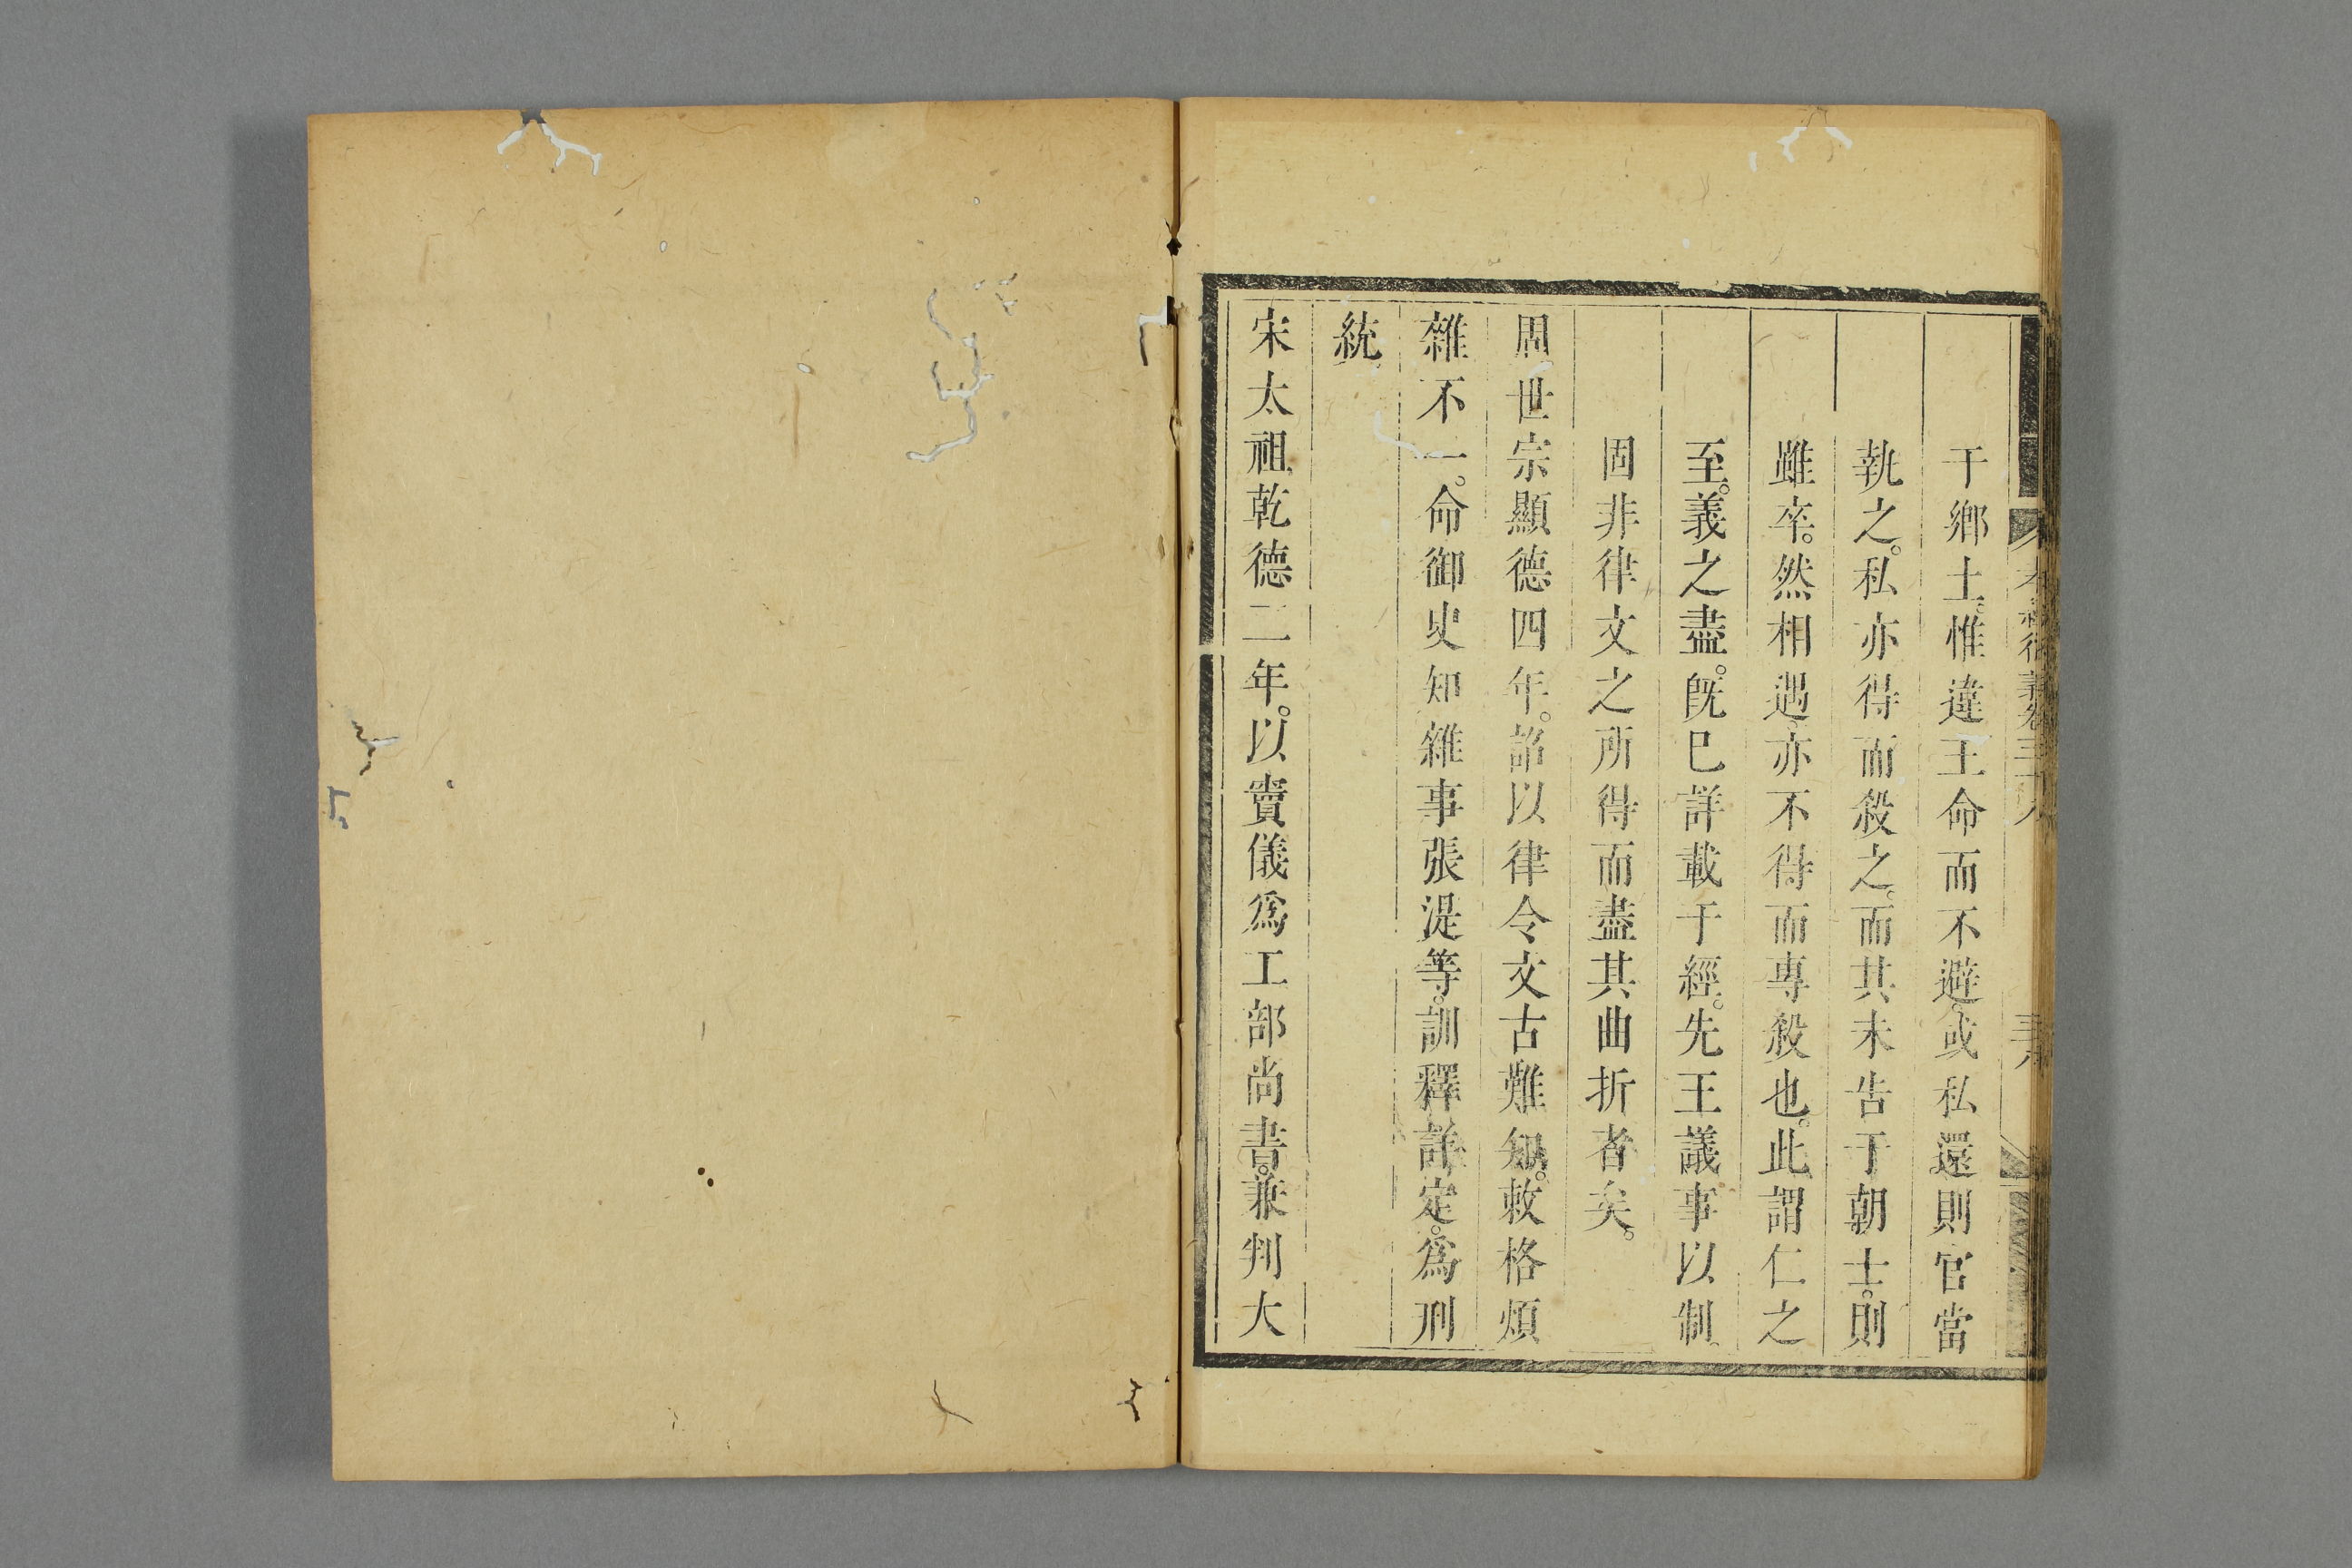 于鄉土惟違王命而不避或私還則官當
執之。私亦得而殺之。而其未告于朝士。則
雖卒。然相遇亦不得而專殺也。此謂仁之
至。義之盡。旣巳詳載于經。先王議事以制
固非律文之所得而盡其曲折者矣。
周世宗顯德四年。詔以律令文古難知。敕格煩
雜不一。命御史知雜事張湜等。訓釋詳定。爲刑
統
宋太祖乾德二年。以竇儀爲工部尚書。兼判大